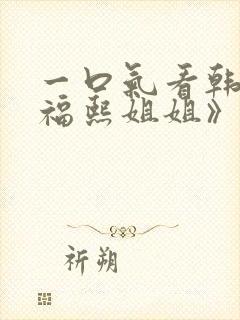 一口氣看韓
福熙姐姐》
祈朔